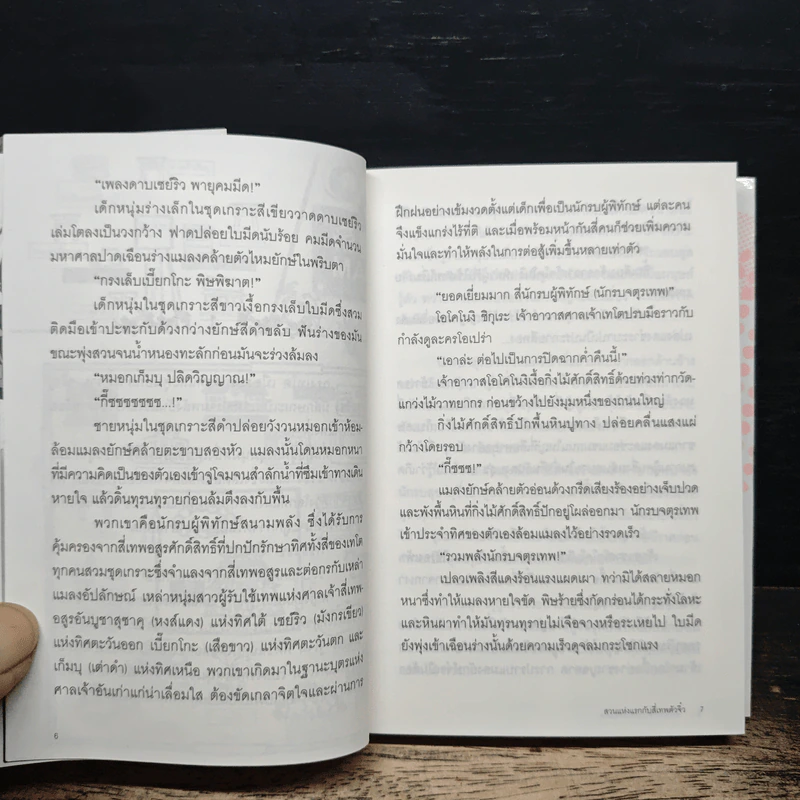 “เพลงดาบเซย์ริว พายุคมมีด!”
เด็กหนุ่มร่างเล็กในชุดเกราะสีเขียววาดดาบเซย์ริว
เล่มโตลงเป็นวงกว้าง ฟาดปล่อยใบมีดนับร้อย คมมีดจำนวน
มหาศาลปาดเฉือนร่างแมลงคล้ายตัวไหมยักษ์ในพริบตา
“กรงเล็บเบี๊ยกโกะ พิษพิฆาต!”
เด็กหนุ่มในชุดเกราะสีขาวเงื้อกรงเล็บใบมีดซึ่งสวม
ติดมือเข้าปะทะกับด้วงกว่างยักษ์สีดำขลับ ฟันร่างของมัน
ขณะพุ่งสวนจนน้ำหนองทะลักก่อนมันจะร่วงล้มลง
“หมอกเก็มบุ ปลิดวิญญาณ!”
“กี๊ซซซซซซซ...!”
ชายหนุ่มในชุดเกราะสีดำปล่อยวังวนหมอกเข้าห้อม
ล้อมแมลงยักษ์คล้ายตะขาบสองหัว แมลงนั้นโดนหมอกหนา
ที่มีความคิดเป็นของตัวเองเข้าจู่โจมจนสำลักน้ำที่ซึมเข้าทางเดิน
หายใจ แล้วดิ้นทุรนทุรายก่อนล้มตึงลงกับพื้น
พวกเขาคือนักรบผู้พิทักษ์สนามพลัง ซึ่งได้รับการ
คุ้มครองจากสี่เทพอสูรศักดิ์สิทธิ์ที่ปกปักรักษาทิศทั้งสี่ของเทโต
ทุกคนสวมชุดเกราะซึ่งจำแลงจากสี่เทพอสูรและต่อกรกับเหล่า
แมลงอัปลักษณ์ เหล่าหนุ่มสาวผู้รับใช้เทพแห่งศาลเจ้าสี่เทพ-
อสูรอันบูชาสุซาคุ (หงส์แดง) แห่งทิศใต้ เซย์ริว (มังกรเขียว)
แห่งทิศตะวันออก เบี๊ยกโกะ (เสือขาว) แห่งทิศตะวันตก และ
เก็มบุ (เต่าดำ) แห่งทิศเหนือ พวกเขาเกิดมาในฐานะบุตรแห่ง
ศาลเจ้าอันเก่าแก่น่าเลื่อมใส ต้องขัดเกลาจิตใจและผ่านการ
6
ฝึกฝนอย่างเข้มงวดตั้งแต่เด็กเพื่อเป็นนักรบผู้พิทักษ์ แต่ละคน
จึงแข็งแกร่งไร้ที่ติ และเมื่อพร้อมหน้ากันสี่คนก็ช่วยเพิ่มความ
มั่นใจและทำให้พลังในการต่อสู้เพิ่มขึ้นหลายเท่าตัว
“ยอดเยี่ยมมาก สี่นักรบผู้พิทักษ์ (นักรบจตุรเทพ)”
โอโคโนงิ ชิกุเระ เจ้าอาวาสศาลเจ้าเทโตปรบมือราวกับ
กำลังดูละครโอเปร่า
“เอาล่ะ ต่อไปเป็นการปิดฉากค่ำคืนนี้!”
เจ้าอาวาสโอโคโนงิเงื้อกิ่งไม้ศักดิ์สิทธิ์ด้วยท่วงท่ากวัด-
แกว่งไม้วาทยากร ก่อนขว้างไปยังมุมหนึ่งของถนนใหญ่
กิ่งไม้ศักดิ์สิทธิ์ปักพื้นหินปูทาง ปล่อยคลื่นแสงแผ่
กว้างโดยรอบ
“กี๊ซซซ!”
แมลงยักษ์คล้ายตัวอ่อนด้วงกรีดเสียงร้องอย่างเจ็บปวด
และพังพื้นหินที่กิ่งไม้ศักดิ์สิทธิ์ปักอยู่โผล่ออกมา นักรบจตุรเทพ
เข้าประจำทิศของตัวเองล้อมแมลงไว้อย่างรวดเร็ว
“รวมพลังนักรบจตุรเทพ!”
เปลวเพลิงสีแดงร้อนแรงแผดเผา ทว่ามิได้สลายหมอก
หนาซึ่งทำให้แมลงหายใจขัด พิษร้ายซึ่งกัดกร่อนได้กระทั่งโลหะ
และหินผาทำให้มันทุรนทุรายไม่เจือจางหรือระเหยไป ใบมีด
ยังพุ่งเข้าเฉือนร่างนั้นด้วยความเร็วดุจลมกระโชกแรง
สวนแห่งแรกกับสี่เทพตัวจิ๋ว 7